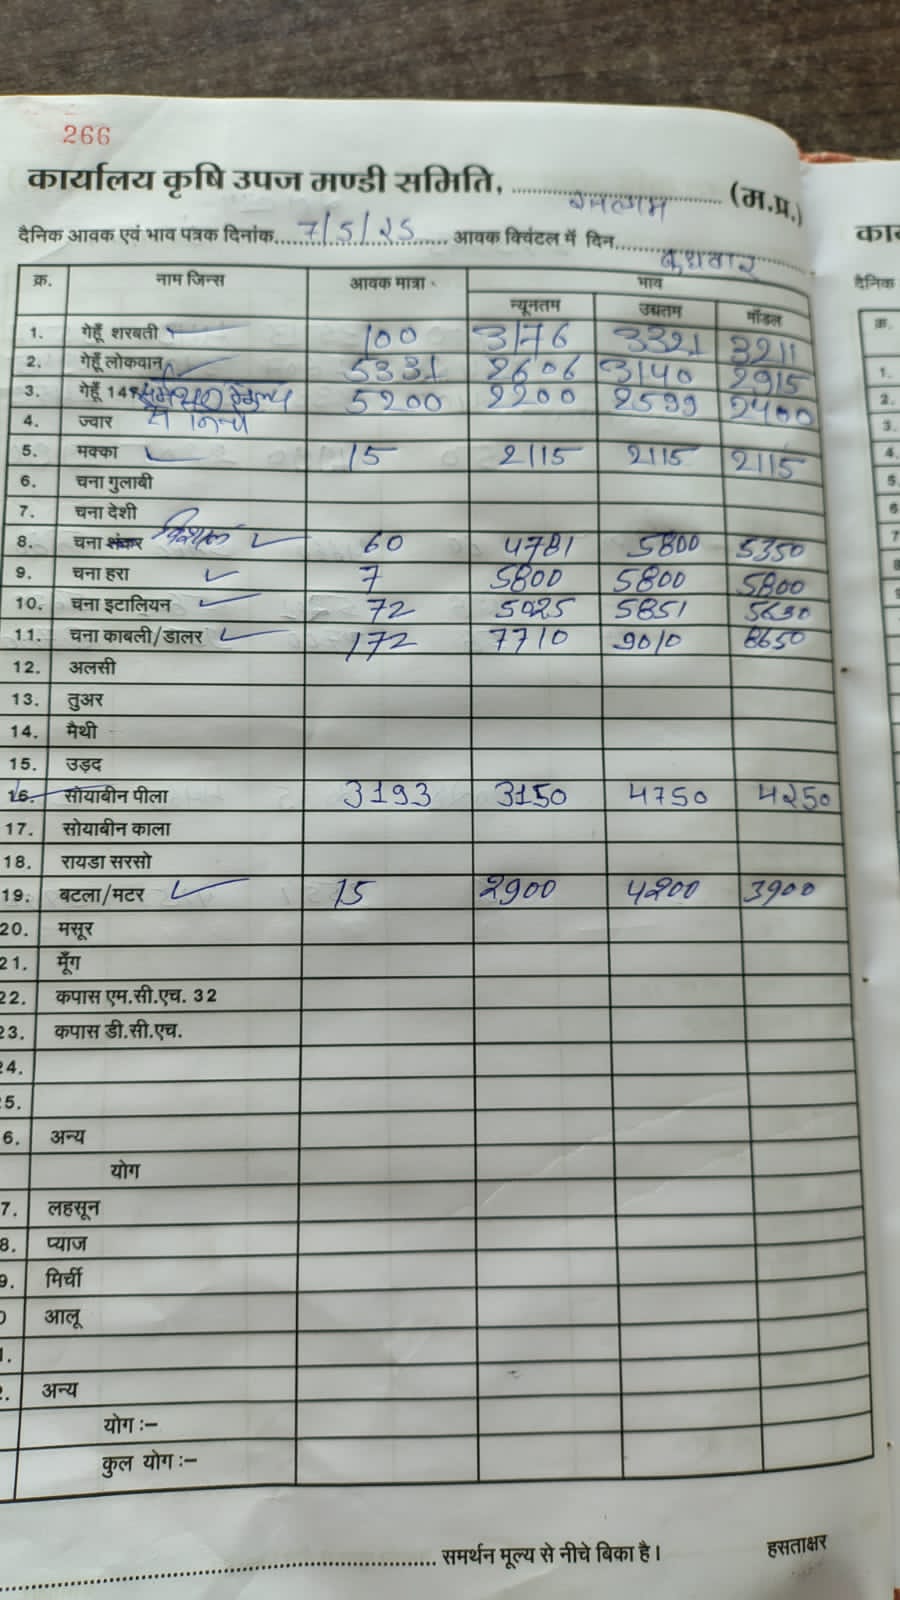 266
कार्यालय कृषि उपज मण्डी समिति, रतलाम (म.प्र.)
दैनिक आवक एवं भाव पत्रक दिनांक 7/5/25 आवक क्विंटल में दिन बुधवार
क्र. नाम जिन्स आवक मात्रा भाव
न्यूनतम उच्चतम मॉडल
1. गेहूँ शरबती 100 3176 3321 3211
2. गेहूँ लोकवान 5331 2606 3140 2915
3. गेहूँ समर्थन मूल्य से निचे 5200 2200 2599 2400
4. ज्वार
5. मक्का 15 2115 2115 2115
6. चना गुलाबी
7. चना देशी
8. चना विशाल 60 4781 5800 5350
9. चना हरा 7 5800 5800 5800
10. चना इटालियन 72 5025 5851 5630
11. चना काबली/डालर 172 7710 9010 8650
12. अलसी
13. तुअर
14. मैथी
15. उड़द
16. सोयाबीन पीला 3193 3150 4750 4250
17. सोयाबीन काला
18. रायडा सरसो
19. बटला/मटर 15 2900 4200 3900
20. मसूर
21. मूँग
22. कपास एम.सी.एच. 32
23. कपास डी.सी.एच.
24.
5.
6. अन्य
योग
7. लहसून
8. प्याज
9. मिर्ची
0 आलू
1.
2. अन्य
योग :–
कुल योग :–
समर्थन मूल्य से नीचे बिका है।
हसताक्षर
कार
दैनिक
क्र.
1.
2.
3.
4.
5.
6
7
8
9